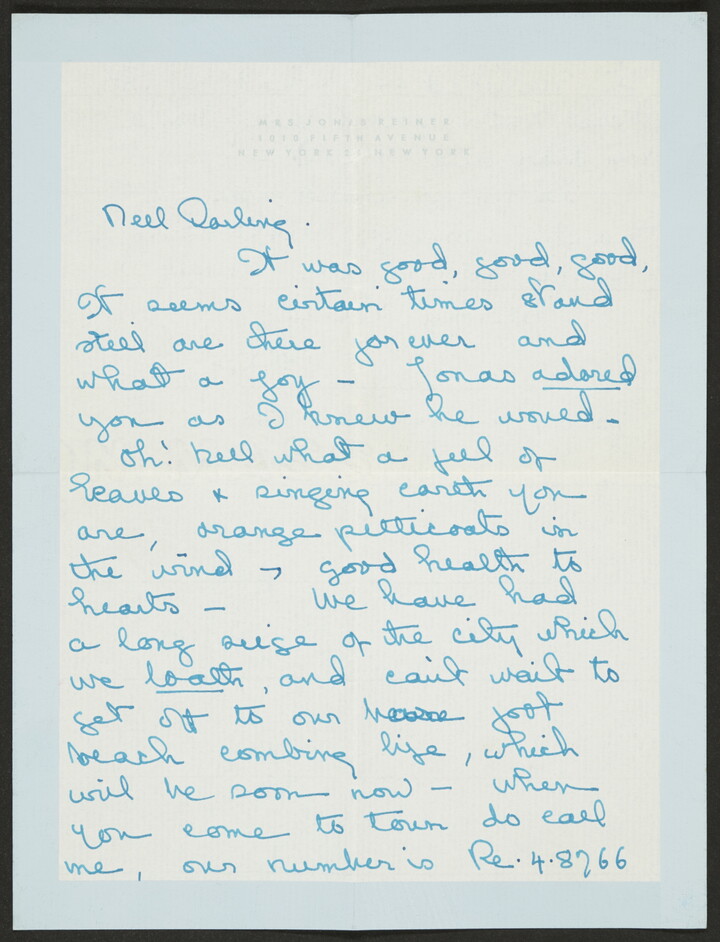 MRS JONAS REYNER
1010 FIFTH AVENUE
NEW YORK 21 NEW YORK
Nell Darling.
It was good, good, good,
It seems certain times stand
still are there for ever and
what a joy - Jonas adored
you as I knew he would -
Oh! Nell what a feel of
leaves & singing earth you
are, orange petticoats in
the wind -, good health to
hearts - We have had
a long seige of the city which
we loath, and can't wait to
get off to our foot
beach combing life, which
will be soon now - when
you come to town do call
me, our number is Re.4.8766